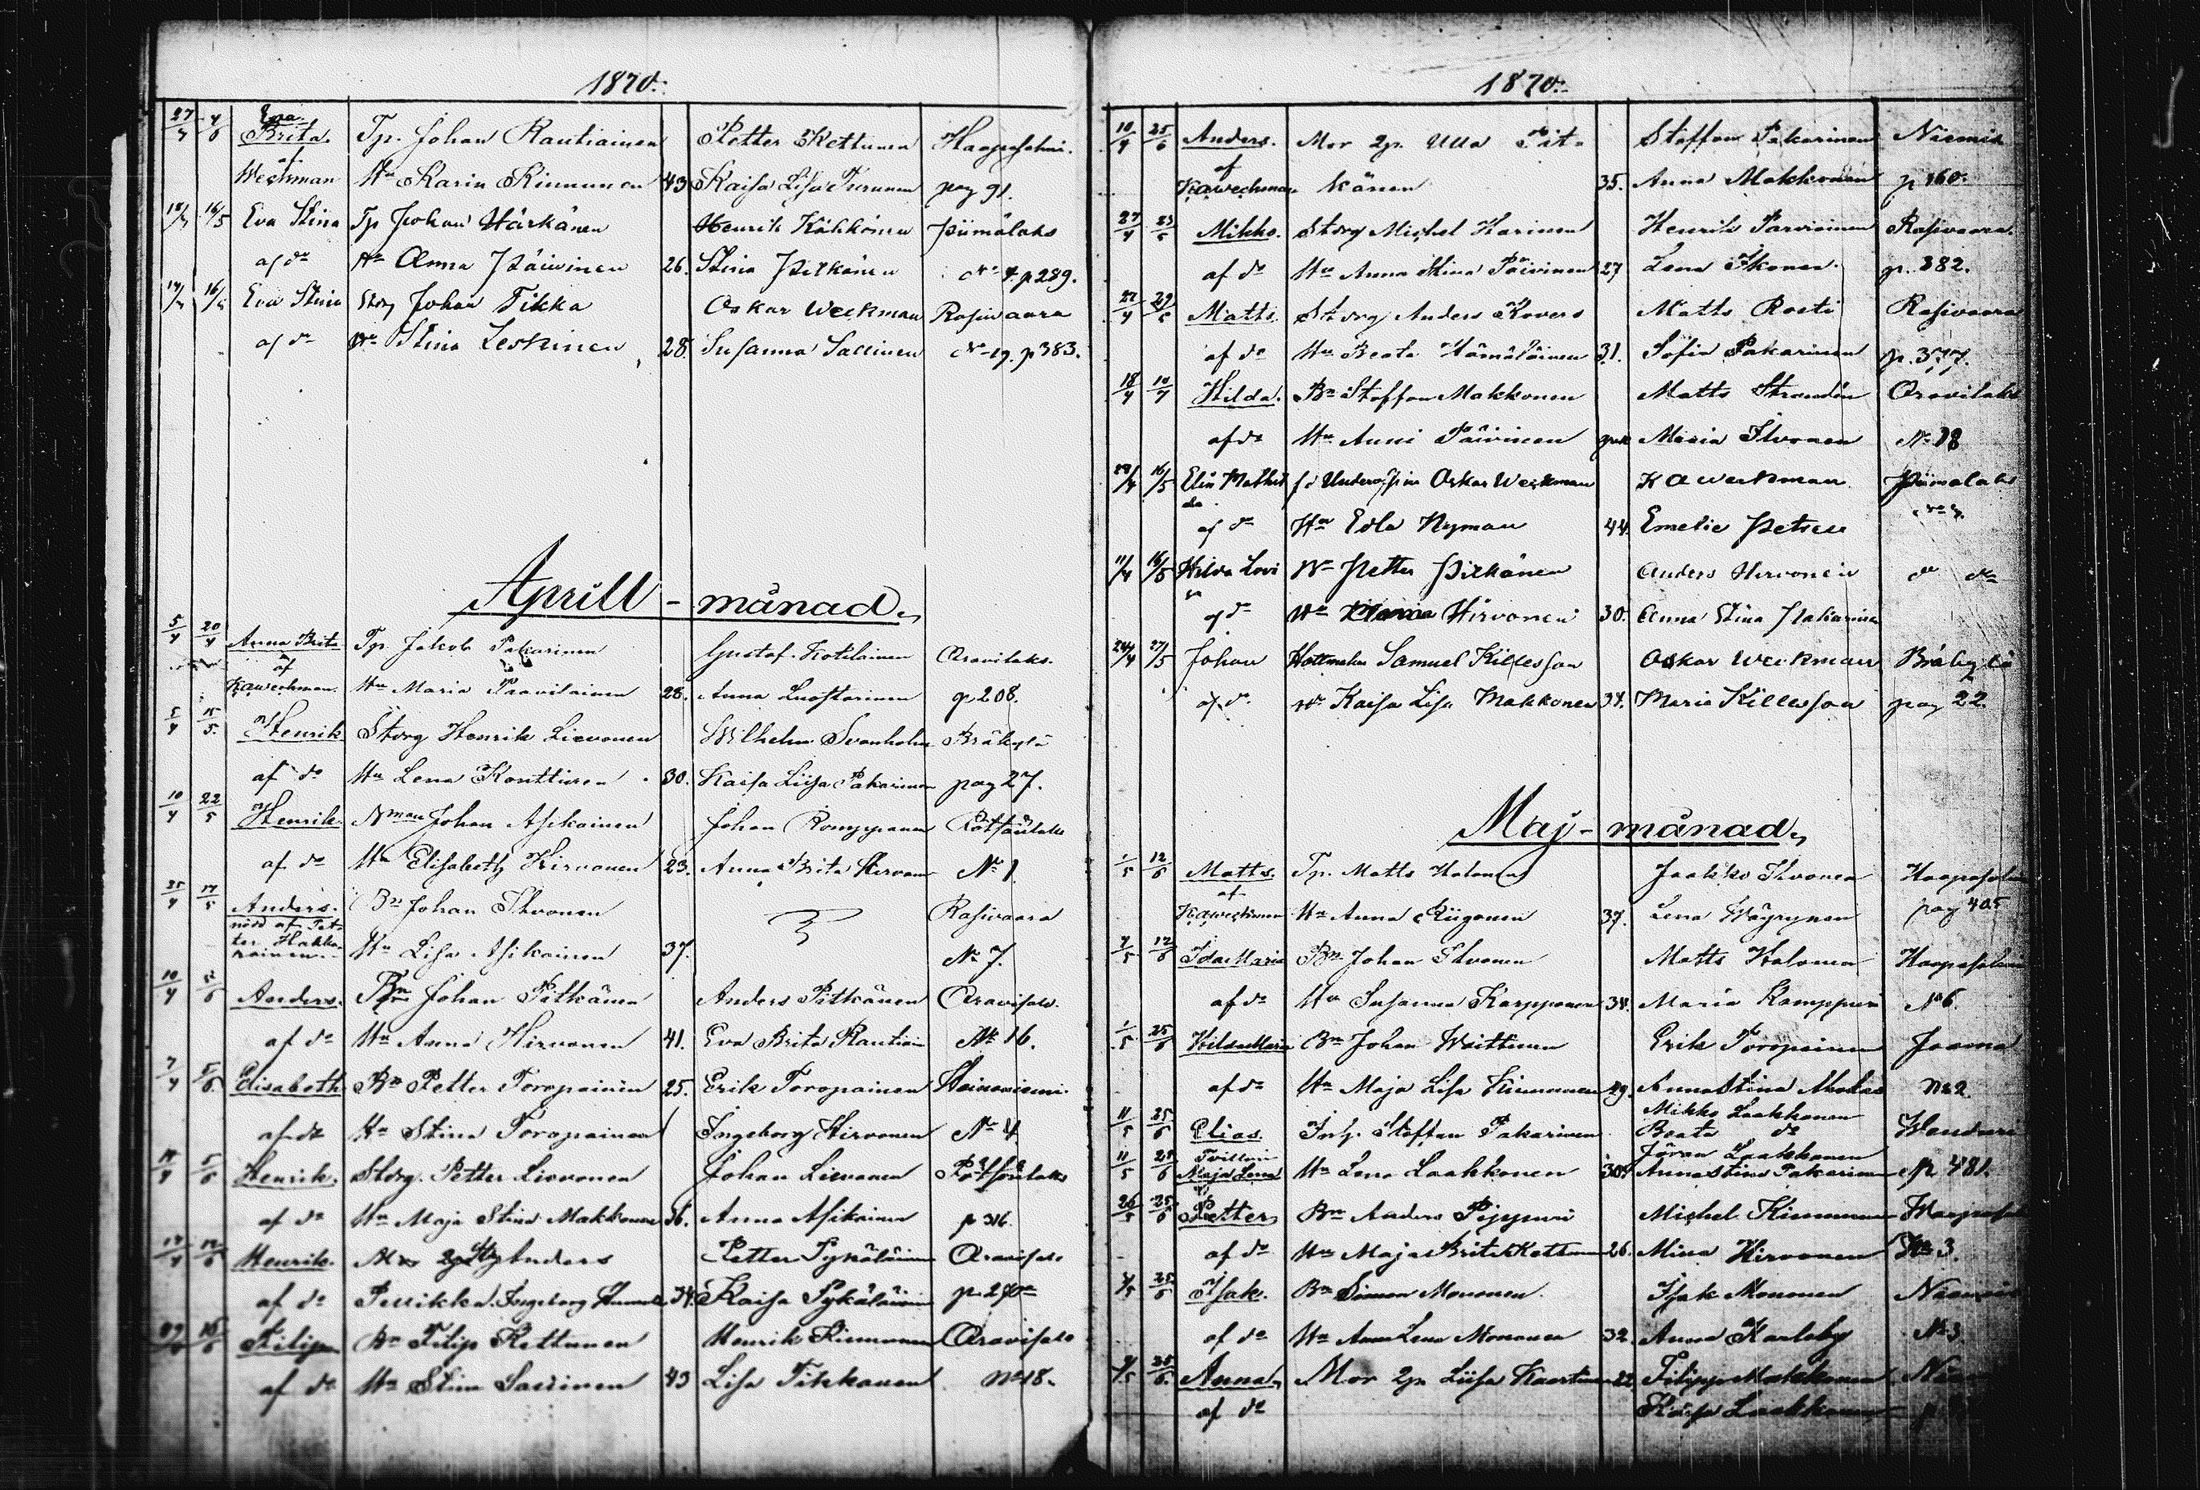 1870.
27/3 4/6 Eva Brita. Tp. Johan Rautiainen Petter Kettunen Haapasalmi.
af Weckman Hu Karin Kinnunen 43 Kaisa Lisa Turunen pag 91.
16/5 Eva Stina Tp Johan Härkänen Henrik Kähkönen Piimälaks
af do Hu Anna Päivinen 26. Stina Pitkänen No 4. p 289.
16/5 Eva Stina Storg Johan Tikka Oskar Weckman Rasivaara
af do Hu Stina Leskinen 28. Susanna Sallinen No 19. p 383.
Aprill-månad.
5/4 20/4 Anna Brita Tp. Jakob Pakarinen Gustaf Kotilainen Oravilaks.
af KAWeckman. Hu Maria Paavilainen 28. Anna Luostarinen p 208.
5/4 15/5. Henrik Storg Henrik Lievonen Wilhelm Svanholm Bråkylä
af do Hu Lena Konttinen 30. Kaisa Liisa Pakarinen pag 27.
10/4 22/5 Henrik. Nman Johan Asikainen Johan Romppanen Rötsänlaks
af do Hu Elisabeth Hirvonen 23. Anna Brita Hirvonen No 1
25/4 17/5 Anders. Bn Johan Ihvonen Rasivaara
nöd af Petter Hakkarainen. Hu Lisa Asikainen 37. No 7.
10/4 5/6 Anders. Bn Johan Pitkänen Anders Pitkänen Oravisalo.
af do Hu Anna Hirvonen 41. Eva Brita Rautiain No 16.
7/4 5/6. Elisabeth. Bn Petter Toropainen 25. Erik Toropainen Heinoniemi.
af do Hu Stina Toropainen Ingeborg Hirvonen No 4
5/6 Henrik. Storg. Petter Lievonen Johan Lievonen Rötsänlaks
af do Hu Maja Stina Makkonen 36. Anna Asikainen p 316
Henrik. Anders Petter Sykäläinen Oravisalo
af do Pesikka. Ingeborg 34. Kaisa Sykäläinen
Filip Bn Filip Kettunen Henrik Kinnunen Oravisalo
af do Hu Stina Sallinen 43 Lisa Tikkanen No 18.
1870.
10/4 25/6 Anders. Mor 2pr. Ulla Pit- Staffan Pakarinen Niemis
af KAWeckman känen 35. Anna Makkonen p 160.
27/4 Mikko. Storg Michel Karinen Henrik Parviainen Rasivaara.
af do Hu Anna Stina Päivinen 27 Lena Ikonen. p. 382.
27/4 29/5 Matts. Storg Anders Kovero Matts Rosti Rasivaara
af do Hu Beata Hämäläinen 31. Sofia Pakarinen p. 377.
18/4 10/7 Hilda. Bn Staffan Makkonen Matts Strandén Oravilaks
af do Hu Anni Päivinen Maria Ihvonen No 18
16/5 Elin Mathilda fd Underoffser Oskar Weckman KAWeckman Piimälaks
af do Hu Edla Nyman 44. Emelie Petrell
11/4 16/5 Hilda Lovisa Bn Petter Pitkänen Anders Hirvonen do do
af do Hu Maria Hirvonen 30. Anna Stina Pakarinen
24/4 27/5 Johan Hattmakn Samuel Killesson Oskar Weckman Bråkylä
af do Hu Kaisa Lisa Makkonen 34. Maria Killesson pag 22.
Maj-månad.
1/5 12/6 Matts. Tp. Matts Halonen Jaakko Ihvonen Haapasalmi
af KAWeckman Hu Anna Riigonen 37. Lena Wäyrynen pag 405
12/6 Ida Maria Bn Johan Ihvonen Matts Halonen Haapasalmi
af do Hu Susanna Karpponen 34. Maria Kamppuri No 6.
1/5 25/6 Hilda Maria Bn Johan Waittinen Erik Toropainen Jaama
af do Hu Maja Lisa Kinnunen Anna Stina No 2.
Mikko Laakkonen
11/5 25/6 Elias. Inh. Staffan Pakarinen Beata do
Tvillin Jöran Laakkonen
11/5 Maja Lena Hu Lena Laakkonen 30. Anna Stina Pakarinen p 481.
26/5 25/6 Petter Bn Anders Pippuri Michel Kinnunen
af do Hu Maja Brita Kettunen 26. Mina Hirvonen No 3.
25/6 Isak. Bn Simon Mononen. Isak Mononen Niemis
af do Hu Anna Lena Mononen 32. Anna Karlsby No 3.
25/6. Anna Mor 2pr Liisa 22 Filipp Makkonen
af do Kaisa Laakkonen